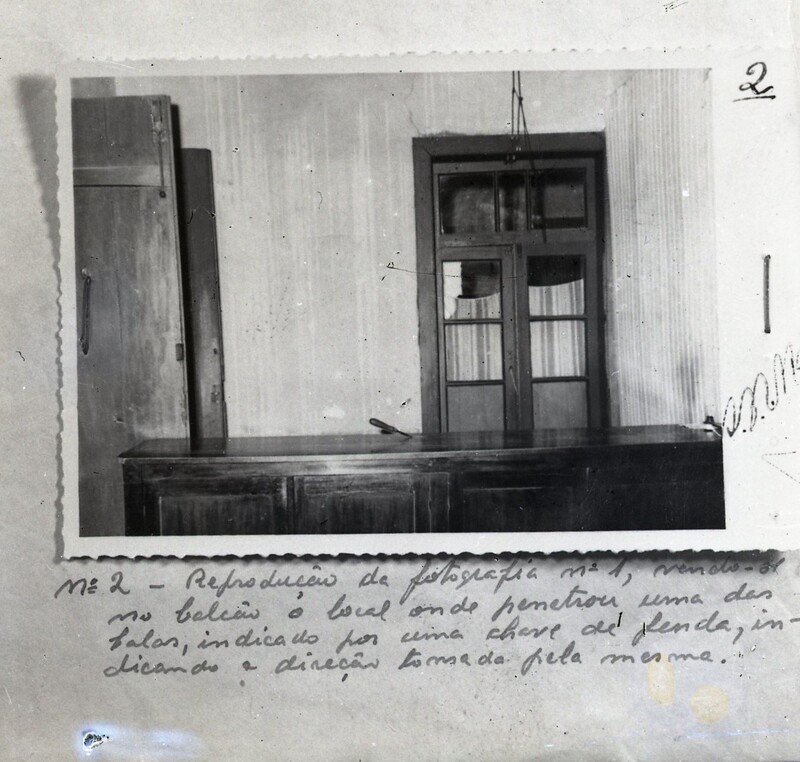 2
Nº 2 - Reprodução da fotografia nº 1, vendo-se
no balcão o local onde penetrou uma das
balas, indicado por uma chave de fenda, in-
dicando a direção tomada pela mesma.
Nº